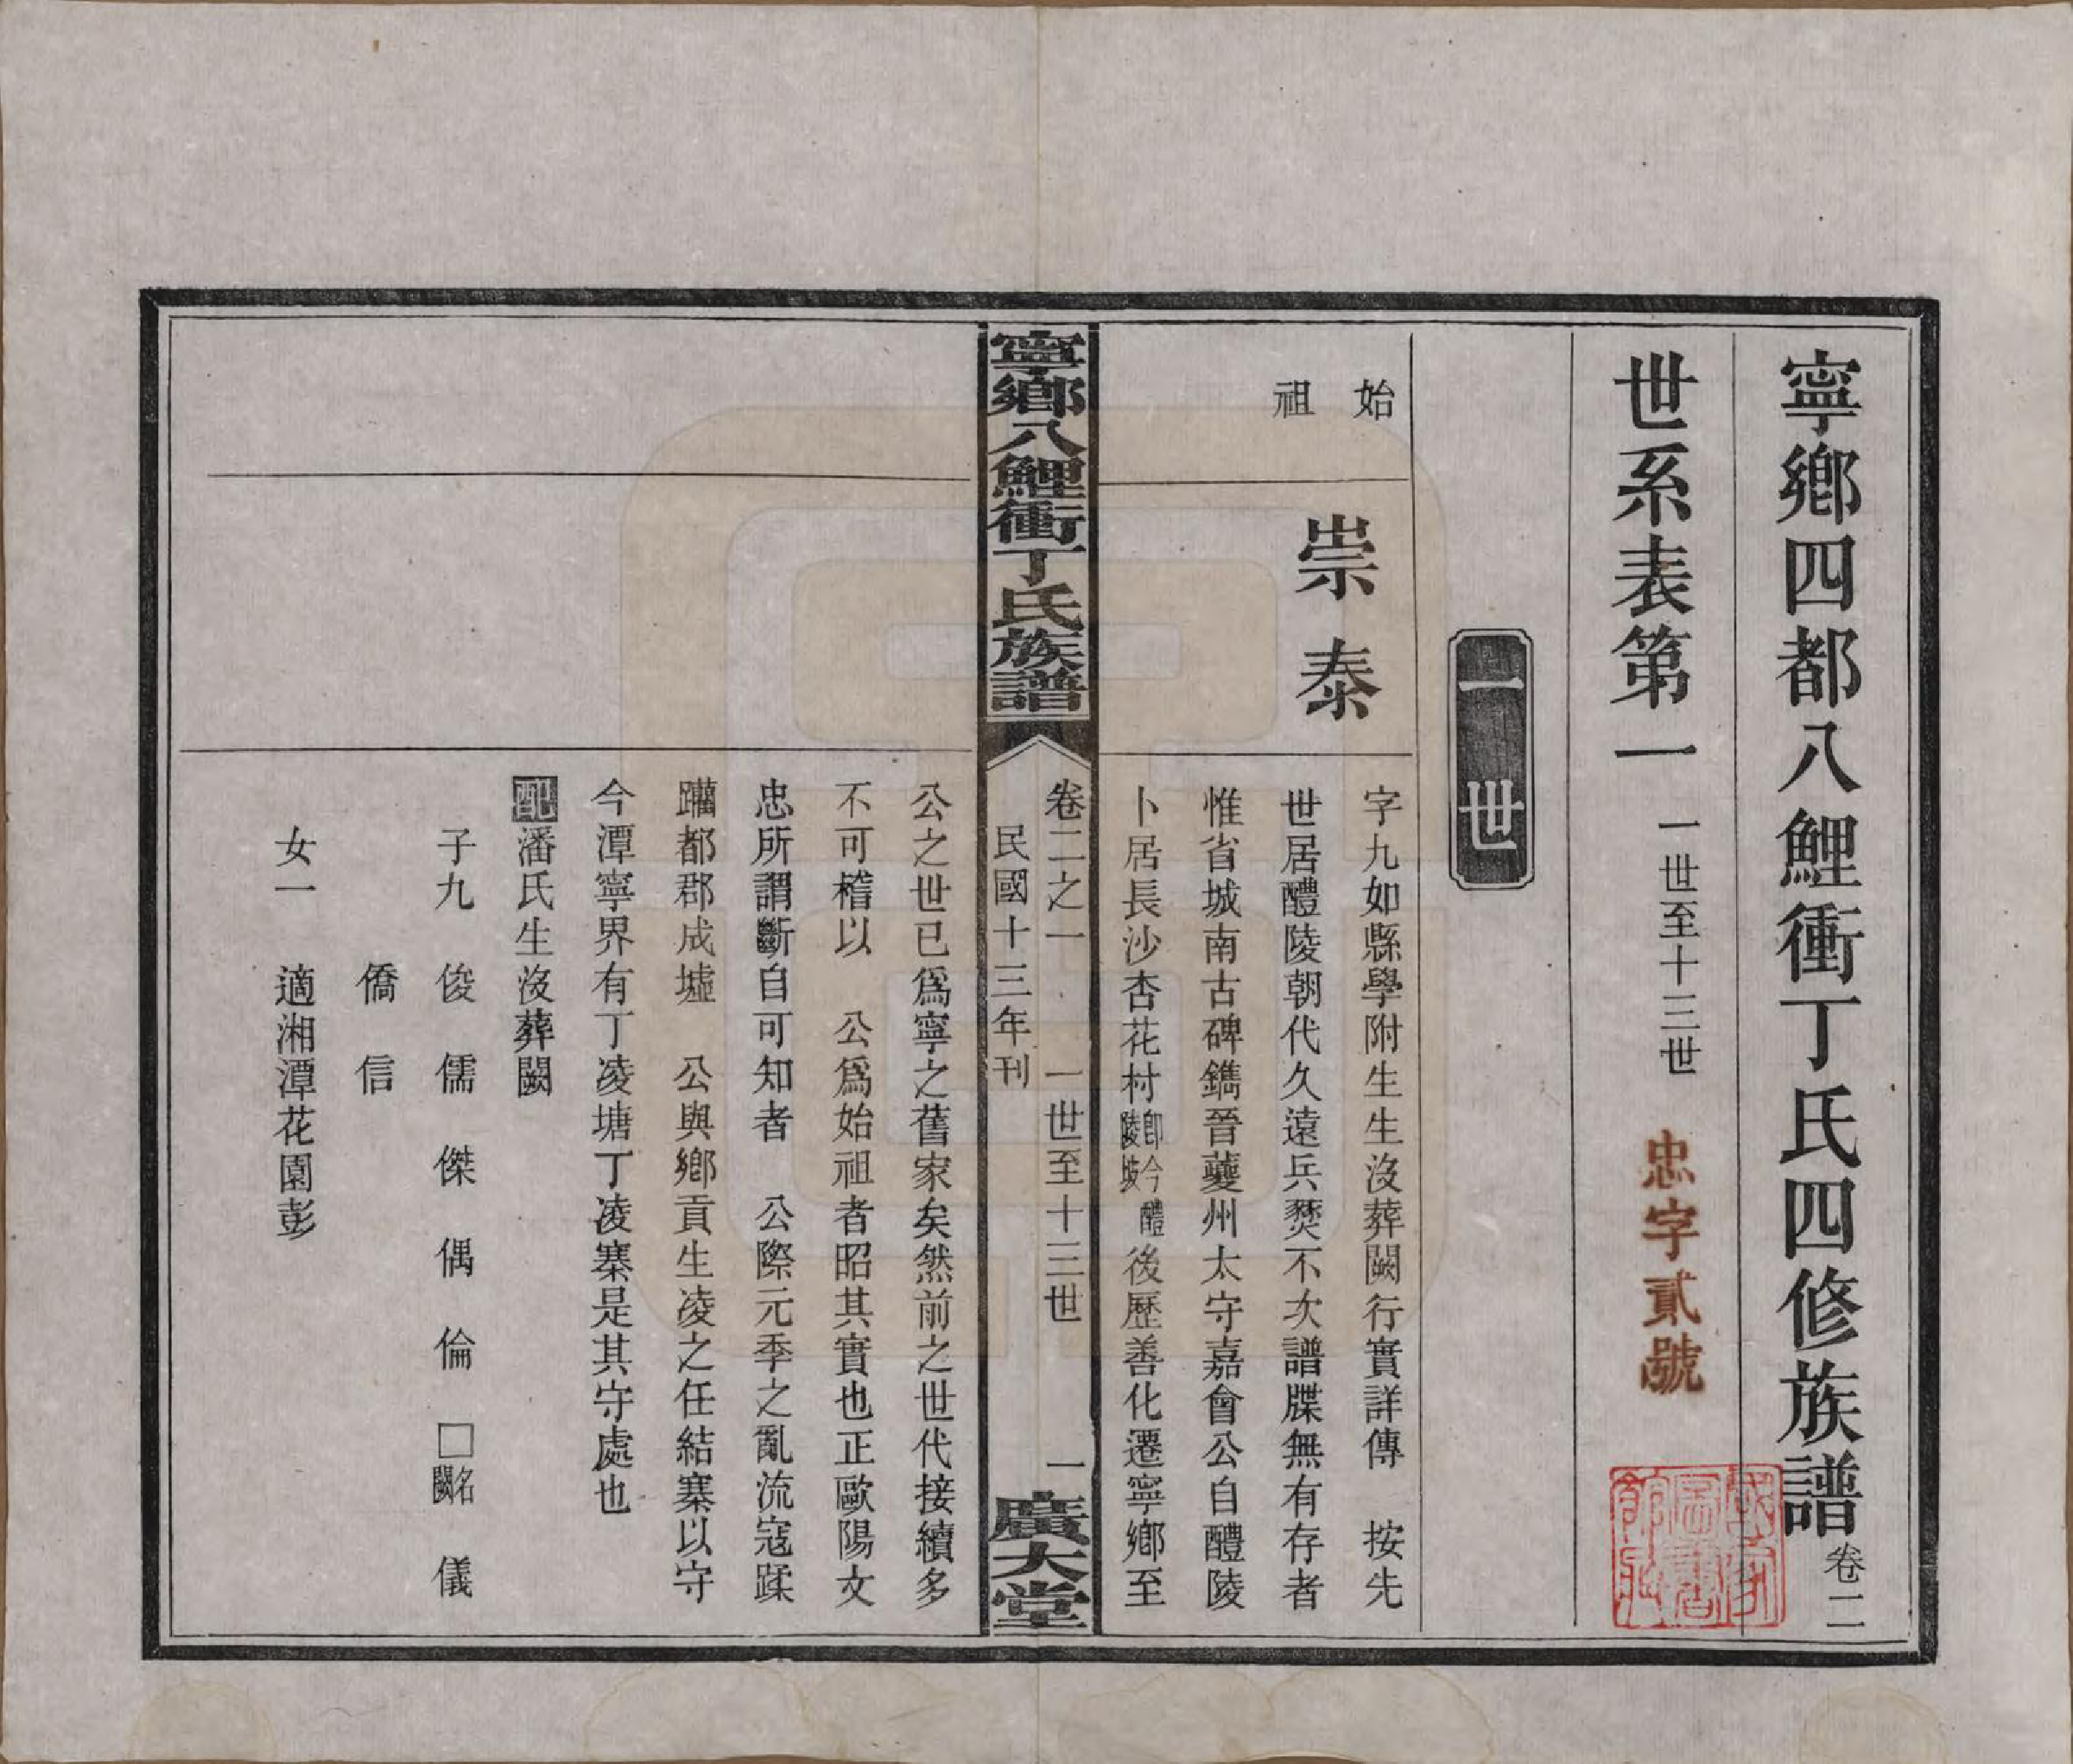 寧鄉四都八鯉衝丁氏四修族譜卷二
世系表第一 一世至十三世 忠字貳號
國家圖書館藏
一世
始祖
崇泰
字九如縣學附生生沒葬闕行實詳傳 按先
世居醴陵朝代久遠兵燹不次譜牒無有存者
惟省城南古碑鐫晉夔州太守嘉會公自醴陵
卜居長沙杏花村卽今醴陵坡後歷善化遷寧鄉至
寧鄉八鯉衝丁氏族譜
卷二之一 一世至十三世 一
民國十三年刊
廣大堂
公之世已爲寧之舊家矣然前之世代接續多
不可稽以 公爲始祖者昭其實也正歐陽文
忠所謂斷自可知者 公際元季之亂流寇蹂
躪都郡成墟 公與鄉貢生凌之任結寨以守
今潭寧界有丁凌塘丁凌寨是其守處也
配潘氏生沒葬闕
子九 俊 儒 傑 偶 倫 □名闕 儀
僑 信
女一 適湘潭花園彭